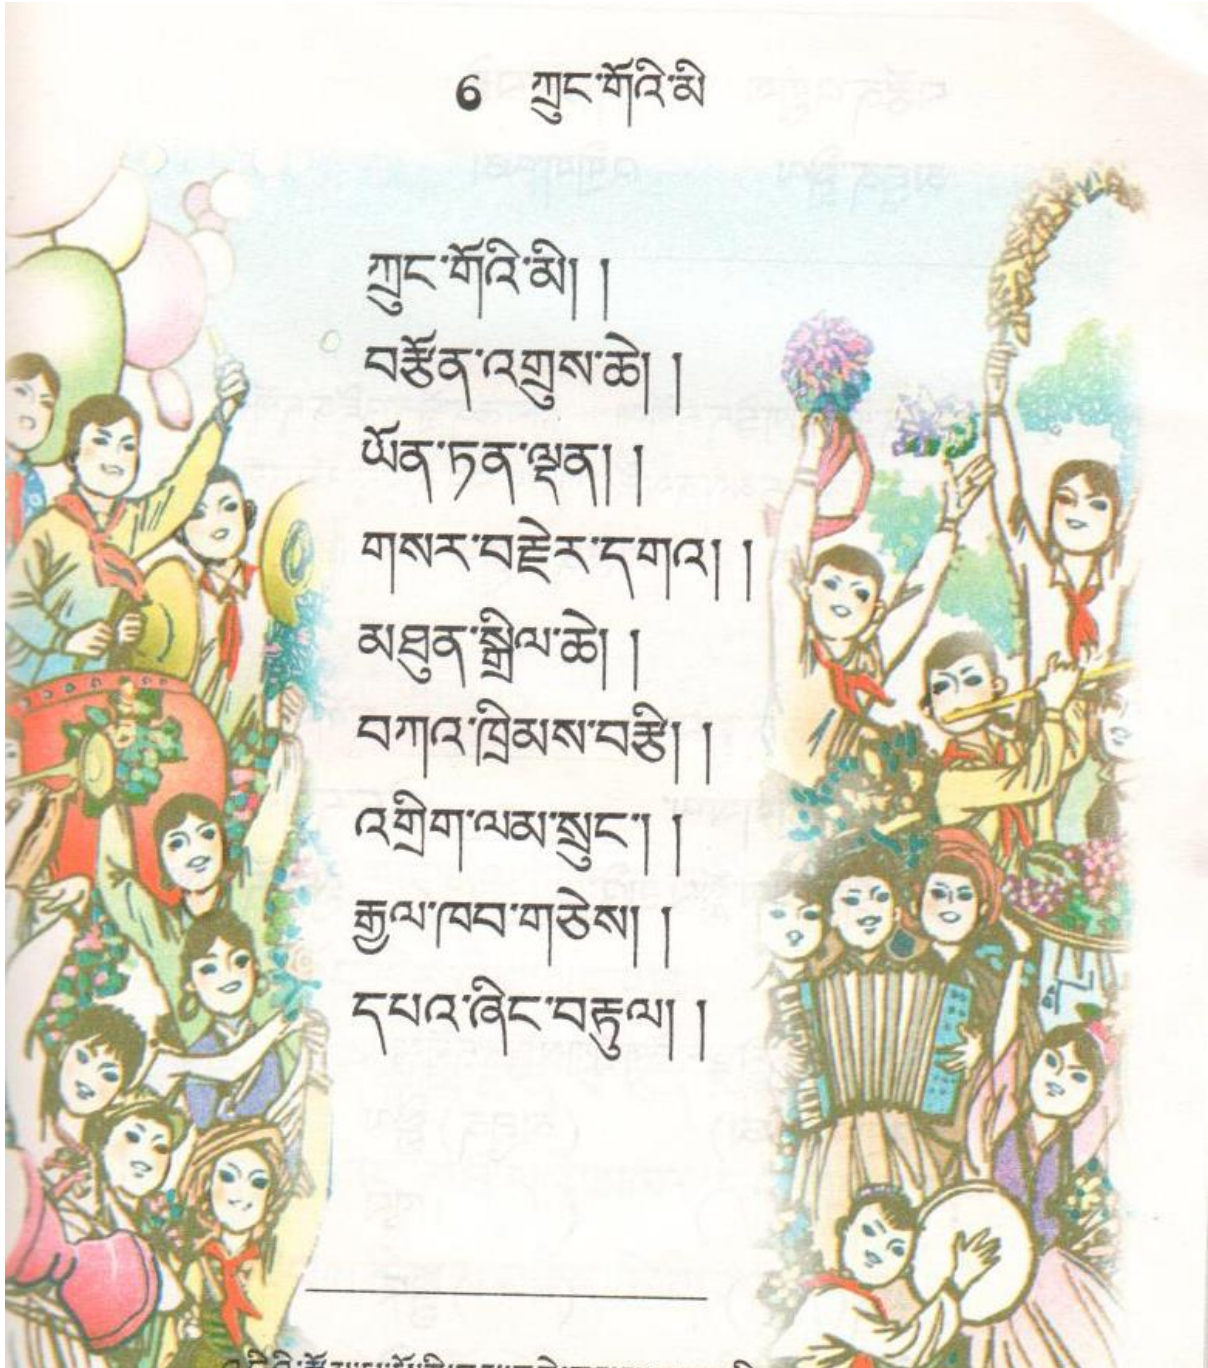 6 ཀྲུང་གོའི་མི
ཀྲུང་གོའི་མི། །
བརྩོན་འགྲུས་ཆེ། །
ཡོན་ཏན་ལྡན། །
གསར་བརྗེར་དགའ། །
མཐུན་སྒྲིལ་ཆེ། །
བཀའ་ཁྲིམས་བརྩི། །
འགྲིག་ལམ་སྲུང་། །
རྒྱལ་ཁབ་གཅེས། །
དཔའ་ཞིང་བརྟུལ། །